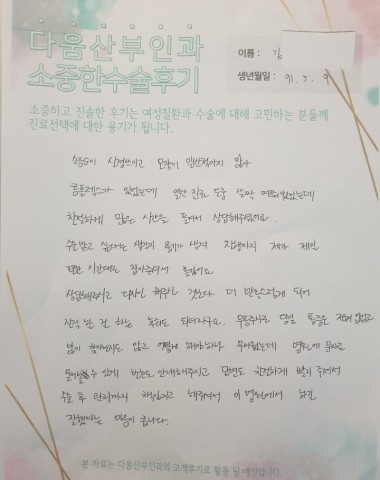 다움산부인과
소중한수술후기
이름 : 김
생년월일 : 91. 5. 9
소중하고 진솔한 후기는 여성질환과 수술에 대해 고민하는 분들께
진료선택에 대한 용기가 됩니다.
소음순이 신경쓰이고 모양이 일반적이지 않아
콤플렉스가 있었는데 일반 진료 도중 살짝 여쭤봤었는데
친절하게 많은 시간을 들여서 상담해주셨어요.
수술받고 싶다는 생각이 용기가 생겨 진행까지 제가 제일
편한 시간대로 잡아주셔서 좋았어요.
상담해주시고 디자인 해주신 것보다 더 만족스럽게 되어
진작 날 잡고 하는 후회도 되더라구요. 무통주사로 당일 통증은 전혀 없었고
많이 찢어지지도 않고 어떻게 해야하나 무서웠는데 병원에 문의로
물어볼 수 있게 번호도 안내해주시고 답변도 친절하게 빨리 주셔서
수술 후 관리까지 책임지고 해주셔서 이 병원에서 하길
잘했다는 마음이 듭니다.
본 자료는 다움산부인과의 고객후기로 활용 될 예정입니다.